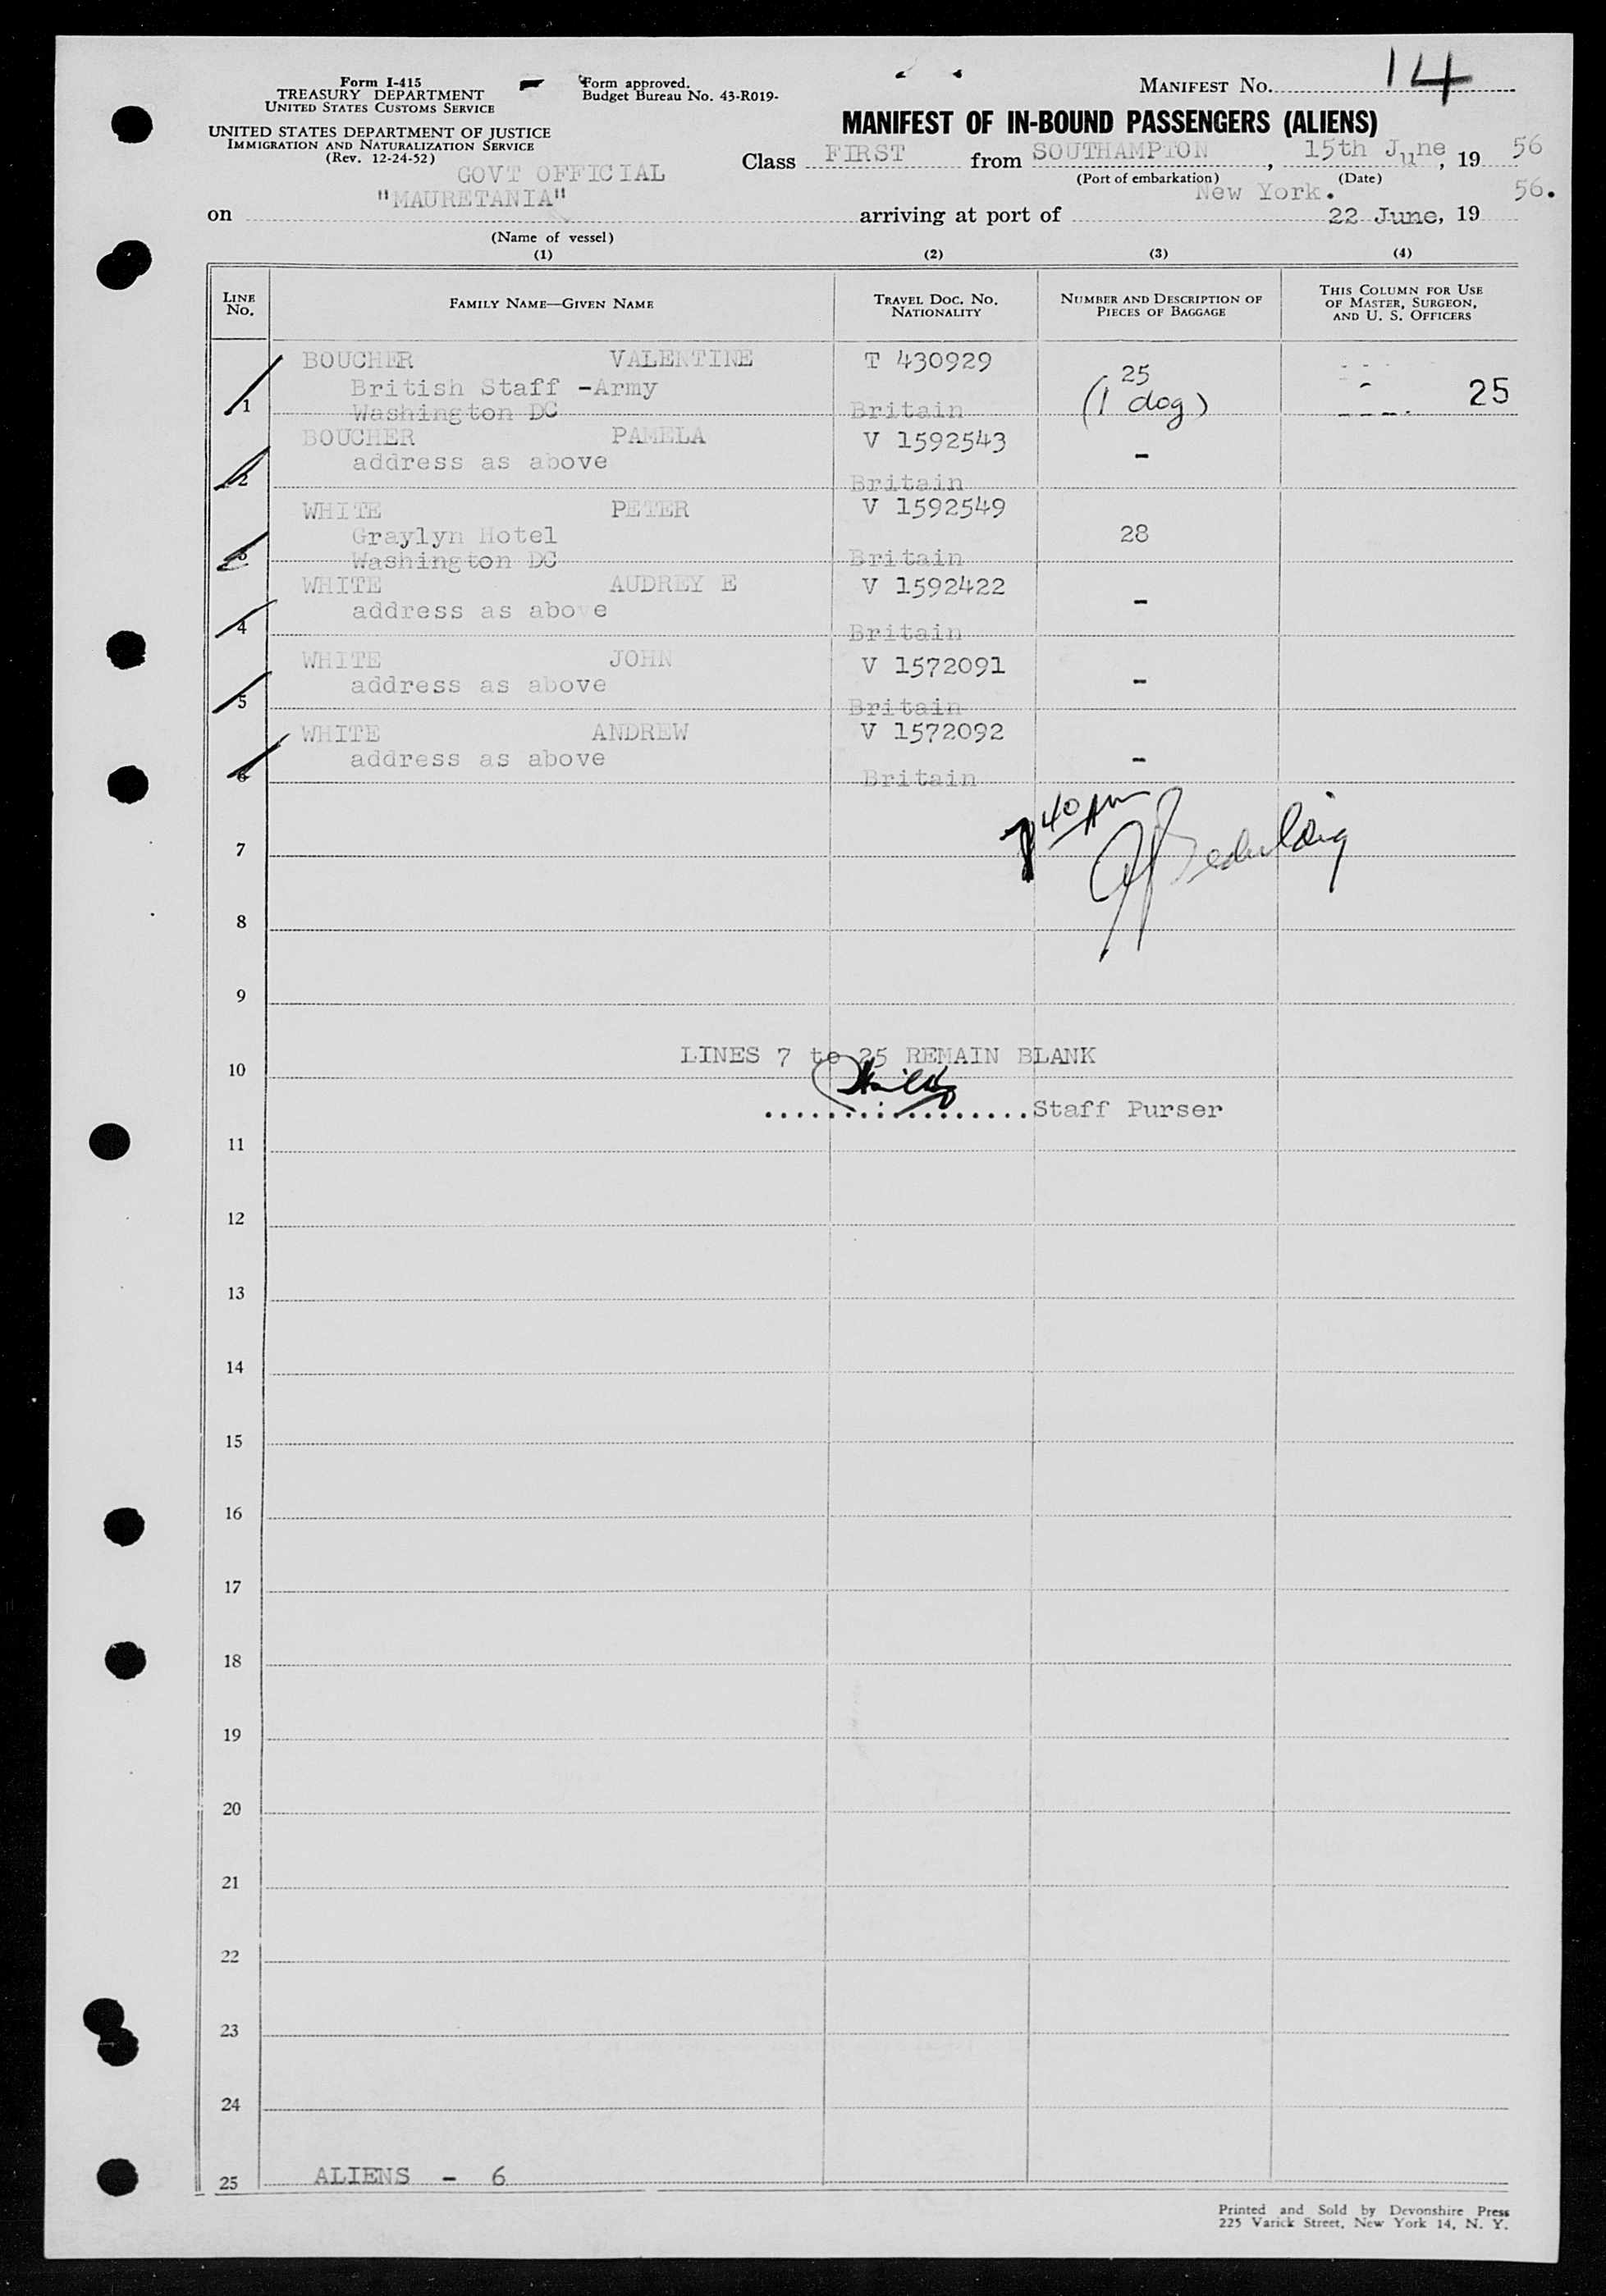 Form I-415
TREASURY DEPARTMENT
UNITED STATES CUSTOMS SERVICE
UNITED STATES DEPARTMENT OF JUSTICE
IMMIGRATION AND NATURALIZATION SERVICE
(Rev. 12-24-52)
Form approved.
Budget Bureau No. 43-R019-
MANIFEST NO. 14
MANIFEST OF IN-BOUND PASSENGERS (ALIENS)
Class FIRST from SOUTHAMPTON, 15th June, 19 56
(Port of embarkation) (Date)
GOVT OFFICIAL
on "MAURETANIA" arriving at port of New York. 22 June, 19 56.
(Name of vessel)
(1) (2) (3) (4)
LINE NO. FAMILY NAME—GIVEN NAME TRAVEL DOC. NO. NATIONALITY NUMBER AND DESCRIPTION OF PIECES OF BAGGAGE THIS COLUMN FOR USE OF MASTER, SURGEON, AND U. S. OFFICERS
BOUCHER VALENTINE T 430929
British Staff -Army 25
1 Washington DC Britain (1 dog) 25
BOUCHER PAMELA V 1592543
address as above -
2 Britain
WHITE PETER V 1592549
Graylyn Hotel 28
3 Washington DC Britain
WHITE AUDREY E V 1592422
address as above -
4 Britain
WHITE JOHN V 1572091
address as above -
5 Britain
WHITE ANDREW V 1572092
address as above -
6 Britain
40 AM
7
8
9
LINES 7 to 25 REMAIN BLANK
10
.................Staff Purser
11
12
13
14
15
16
17
18
19
20
21
22
23
24
25 ALIENS - 6
Printed and Sold by Devonshire Press
225 Varick Street, New York 14, N. Y.